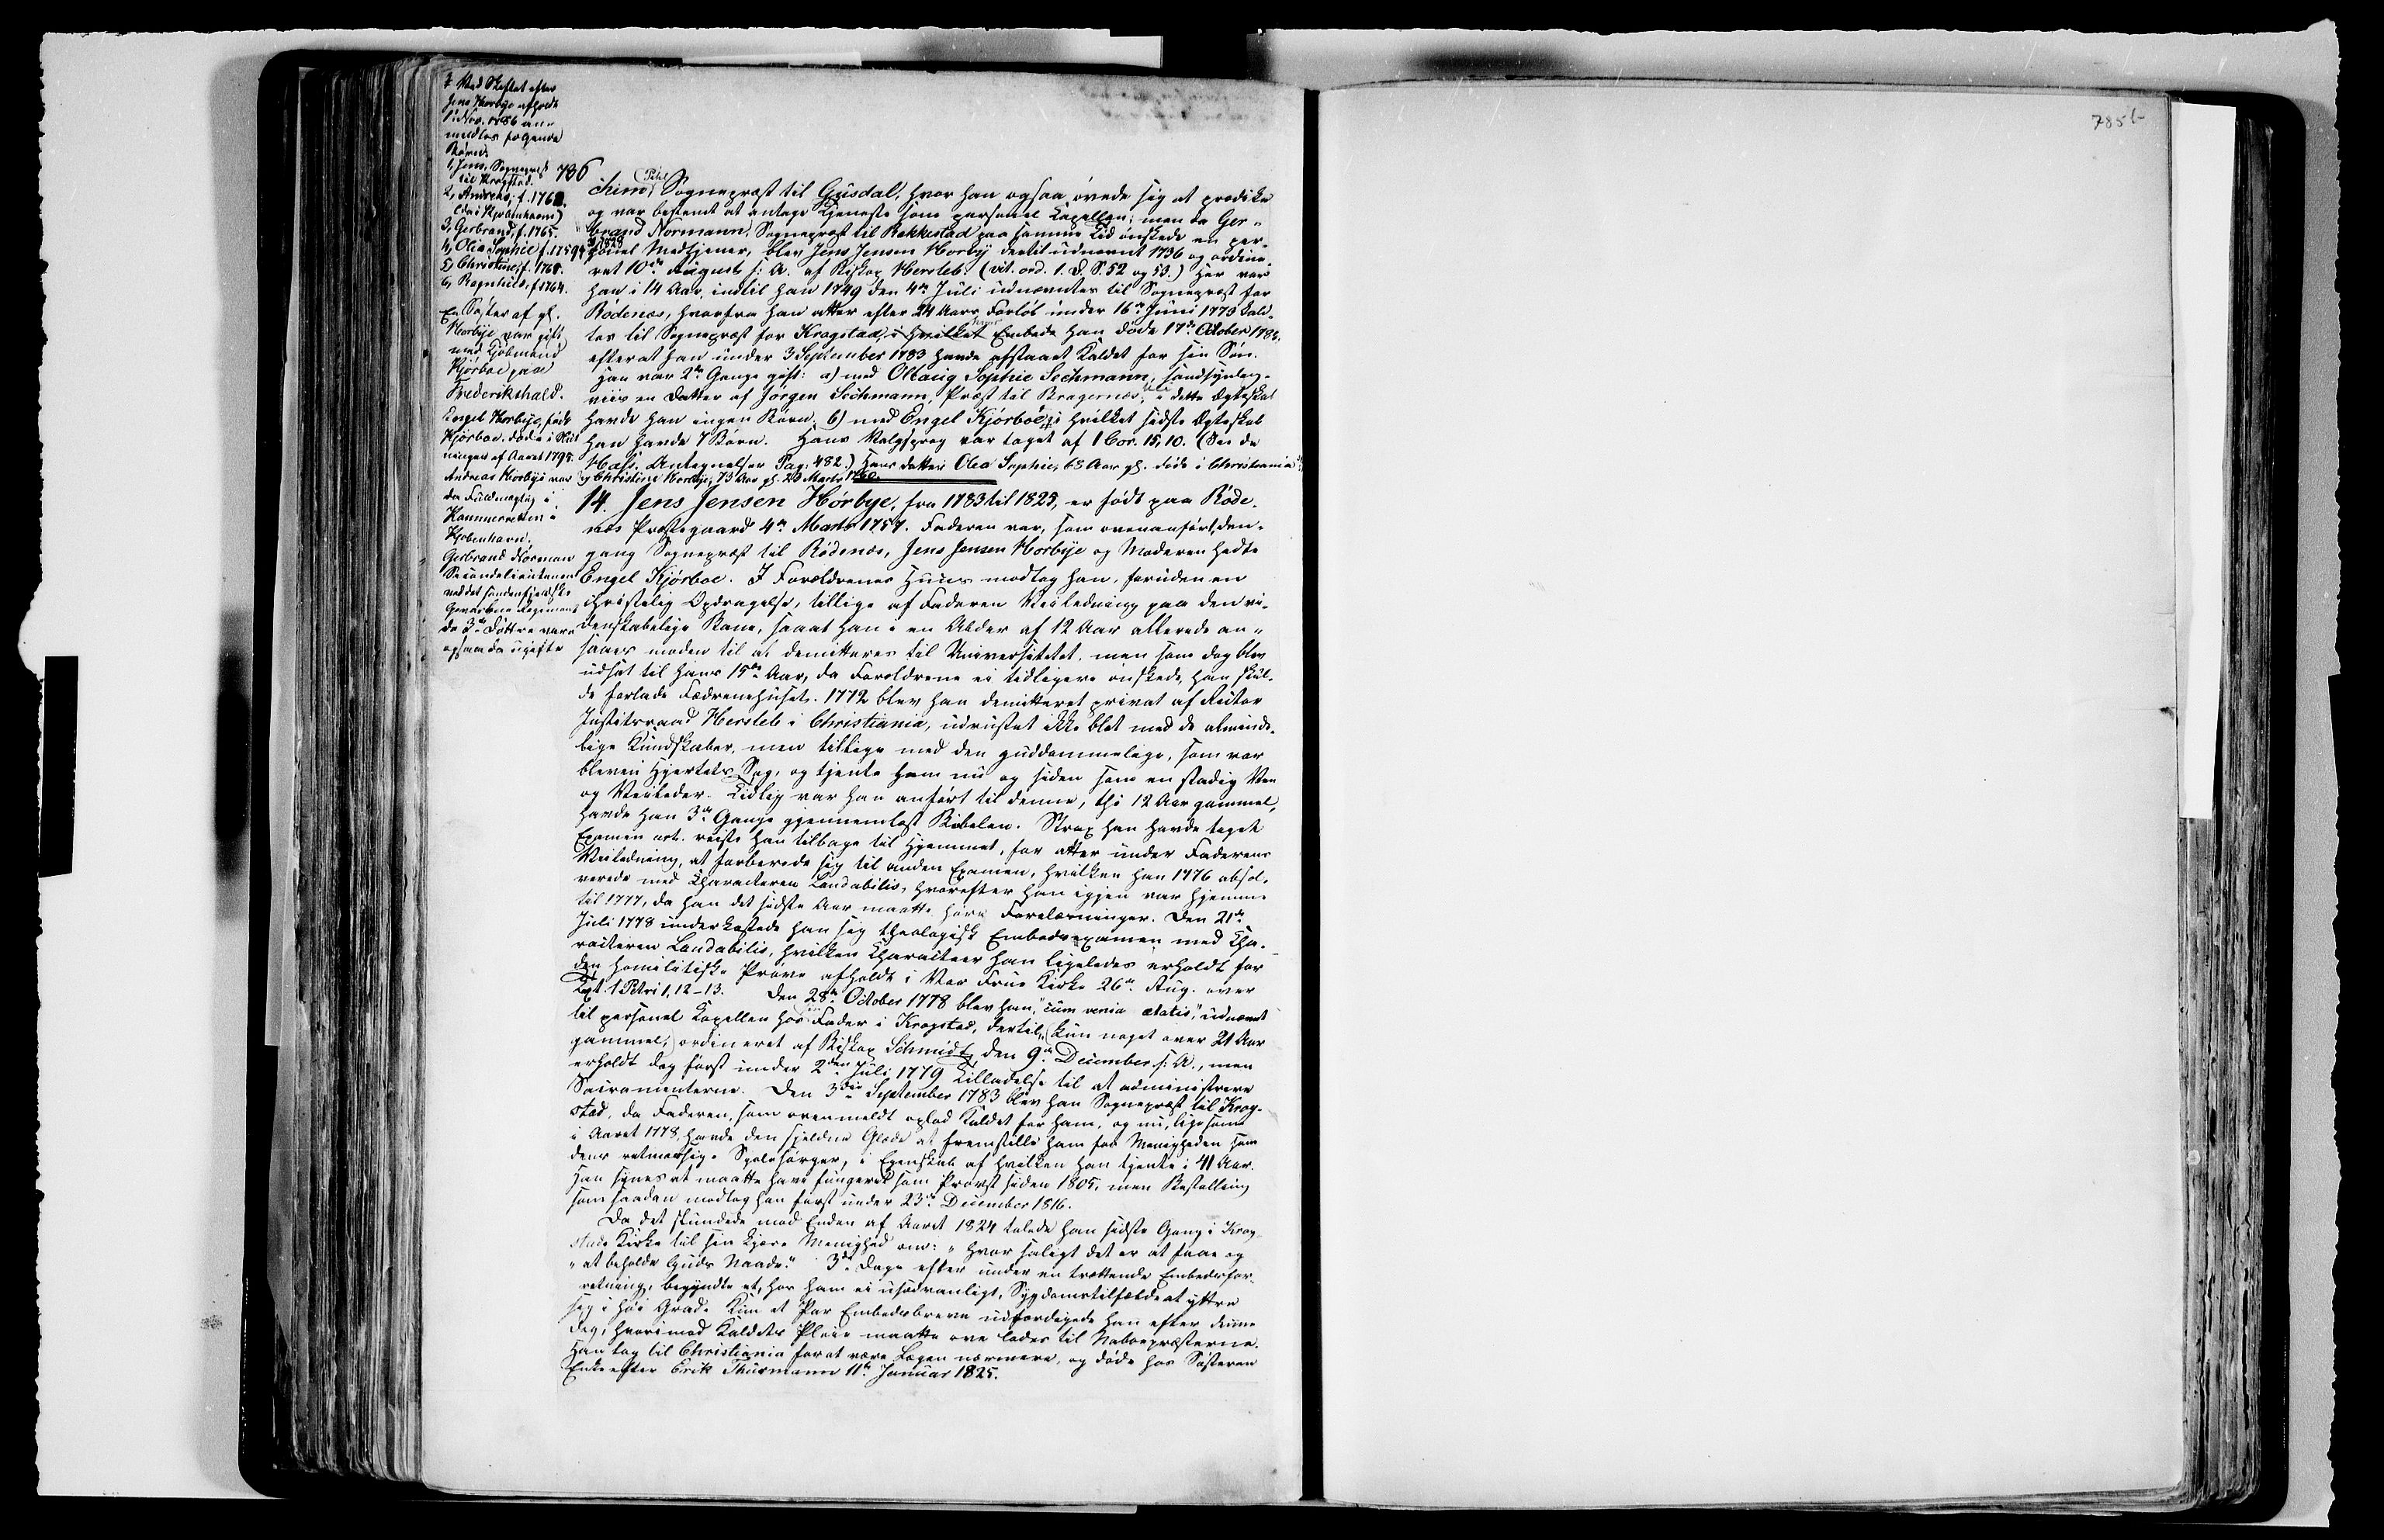 ⸸ Ved Skiftet efter
Jens Horbye afholdt
1 Nov. 1786 an-
meldtes følgende
Børn:
1, Jens, Sognepræst
til Krogstad.
2, Andreas, f. 1762.
(da i Kjøbenhavn)
3, Gerbrand, f. 1765.
4, Olea Sophie f. 1759
5, Christine, f. 1768.
6, Ragnhild, f 1764.
En Søster af gl.
Horbye var gift
med Kjøbmand
Kjørboe paa
Frederikshald.
Engel Horbye, født
Kjørboe døde i Slut
ningen af Aaret 1795.
Andreas Horbye var
da Fuldmægtig i
Kammerretten i
Kjøbenhavn.
Gerbrand Norman
Secondelieutenant
ved det søndenfjeldske
Gevorbne Regiment
de 3de Døttre vare
ogsaa da ugifte
786
Kino, Sognepræst til Gusdal, hvor han ogsaa øvede sig at prædike
og var bestemt at antage Tjeneste som personel Kapellan; men da Ger-
brand Normann, Sognepræst til Rakkestad paa samme Tid ønskede en per-
sonel Medtjener, blev Jens Jensen Horby dertil udnævnt 1736 og ordine-
ret 10de August s: A. af Biskop Hersleb. (vit. ord. 1. D. S. 52 og 53.) Her var
han i 14 Aar, indtil han 1749 den 4de Juli udnævntes til Sognepræst for
Rødenæs, hvorfra han atter efter 24 Aars Forløb under 16de Juni 1773 kald-
tes til Sognepræst for Kragstad, i hvilket Embede han døde 17de October 1786.
efterat han under 3 September 1783 havde afstaaet Kaldet for sin Søn.
Han var 2de Gange gift: a) med Ollaug Sophie Sechmann, sandsynlig-
viis en Datter af Jørgen Sechmann, Præst til Bragernæs, i dette Ægteskab
havde han ingen Børn, b) med Engel Kjørboe, i hvilket sidste Ægteskab
han havde 7 Børn. Hans Valgsprog var taget af 1 Cor. 15, 10. (See de
Hass. Antegnelser Pag: 482.) Hans Datter Olea Sophie, 68 Aar gl. døde i Christiania
og Christine Horbye, 73 Aar gl. 23 Marts
14. Jens Jensen Hørbye, fra 1783 til 1825, er født paa Røde-
næs Præstegaard 4de Marts 1757. Faderen var, som ovenanført, den-
gang Sognepræst til Rødenæs, Jens Jensen Horbye og Moderen hedte
Engel Kjørboe. I Forældrenes Huus modtog han, foruden en
christelig Opdragelse, tillige af Faderen Veiledning paa den vi-
denskabelige Bane, saaat han i en Alder af 12 Aar allerede an-
saaes moden til at demitteres til Universitetet, men som dog blev
udsat til hans 15de Aar, da Forældrene ei tidligere ønskede, han skul-
de forlade Fædrenehuset. 1772 blev han demitteret privat af Rector
Justitsraad Hersleb i Christiania, udrustet ikke blot med de alminde-
lige Kundskaber, men tillige med den guddommelige, som var
bleven Hjertets Sag, og tjente ham nu og siden som en stadig Ven
og Veileder. Tidlig var han anført til denne, thi 12 Aar gammel,
havde han 3de Gange gjennemlæst Bibelen. Strax han havde taget
Examen art. reiste han tilbage til Hjemmet, for atter under Faderens
Veiledning, at forberede sig til anden Examen, hvilken han 1776 absol-
verede med Characteren Laudabilis, hvorefter han igjen var hjemme
til 1777, da han det sidste Aar maatte høre Forelæsninger. Den 21de
Juli 1778 underkastede han sig theologisk Embedsexamen med Cha-
racteren Laudabilis, hvilken Characteer han ligeledes erholdt for
den homiletiske Prøve afholdt i Vor Frue Kirke 26de Aug. over
Text. 1 Petri 1, 12-13. Den 28de October 1778 blev han, "cum venia ætatis," udnævnt
til personel Kapellan hos sin Fader i Krogstad, dertil, (kun noget over 21 Aar
gammel,) ordineret af Biskop Schmidt, den 9de December s: A., men
erholdt dog først under 2den Juli 1779 Tilladelse til at administrere
Sacramenterne. Den 3die September 1783 blev han Sognepræst til Krog-
stad, da Faderen, som ovenmeldt oplod Kaldet for ham, og nu, ligesom
i Aaret 1778, havde den sjeldne Glæde at fremstille ham for Menigheden som
dens retmæssige Sjælesørger, i Egenskab af hvilken han tjente i 41 Aar.
Han synes at maatte have fungeret som Provst siden 1805, men Bestalling
som saadan modtog han først under 23de December 1816.
Da det stundede mod Enden af Aaret 1824 talede han sidste Gang i Krog-
stads Kirke til sin kjære Menighed om: "hvor saligt det er at faae og
"at beholde Guds Naade." 3de Dage efter under en trættende Embedsfor-
retning, begyndte et, hos ham ei usædvanligt, Sygdomstilfælde at yttre
sig i høi Grad. Kun et Par Embedsbreve udfærdigede han efter denne
Dag, hvorimod Kaldets Pleie maatte overlades til Nabopræsterne.
Han tog til Christiania forat være Lægen nærmere, og døde hos Søsteren
Enke efter Erik Thurmann 11te Januar 1825.
785 b